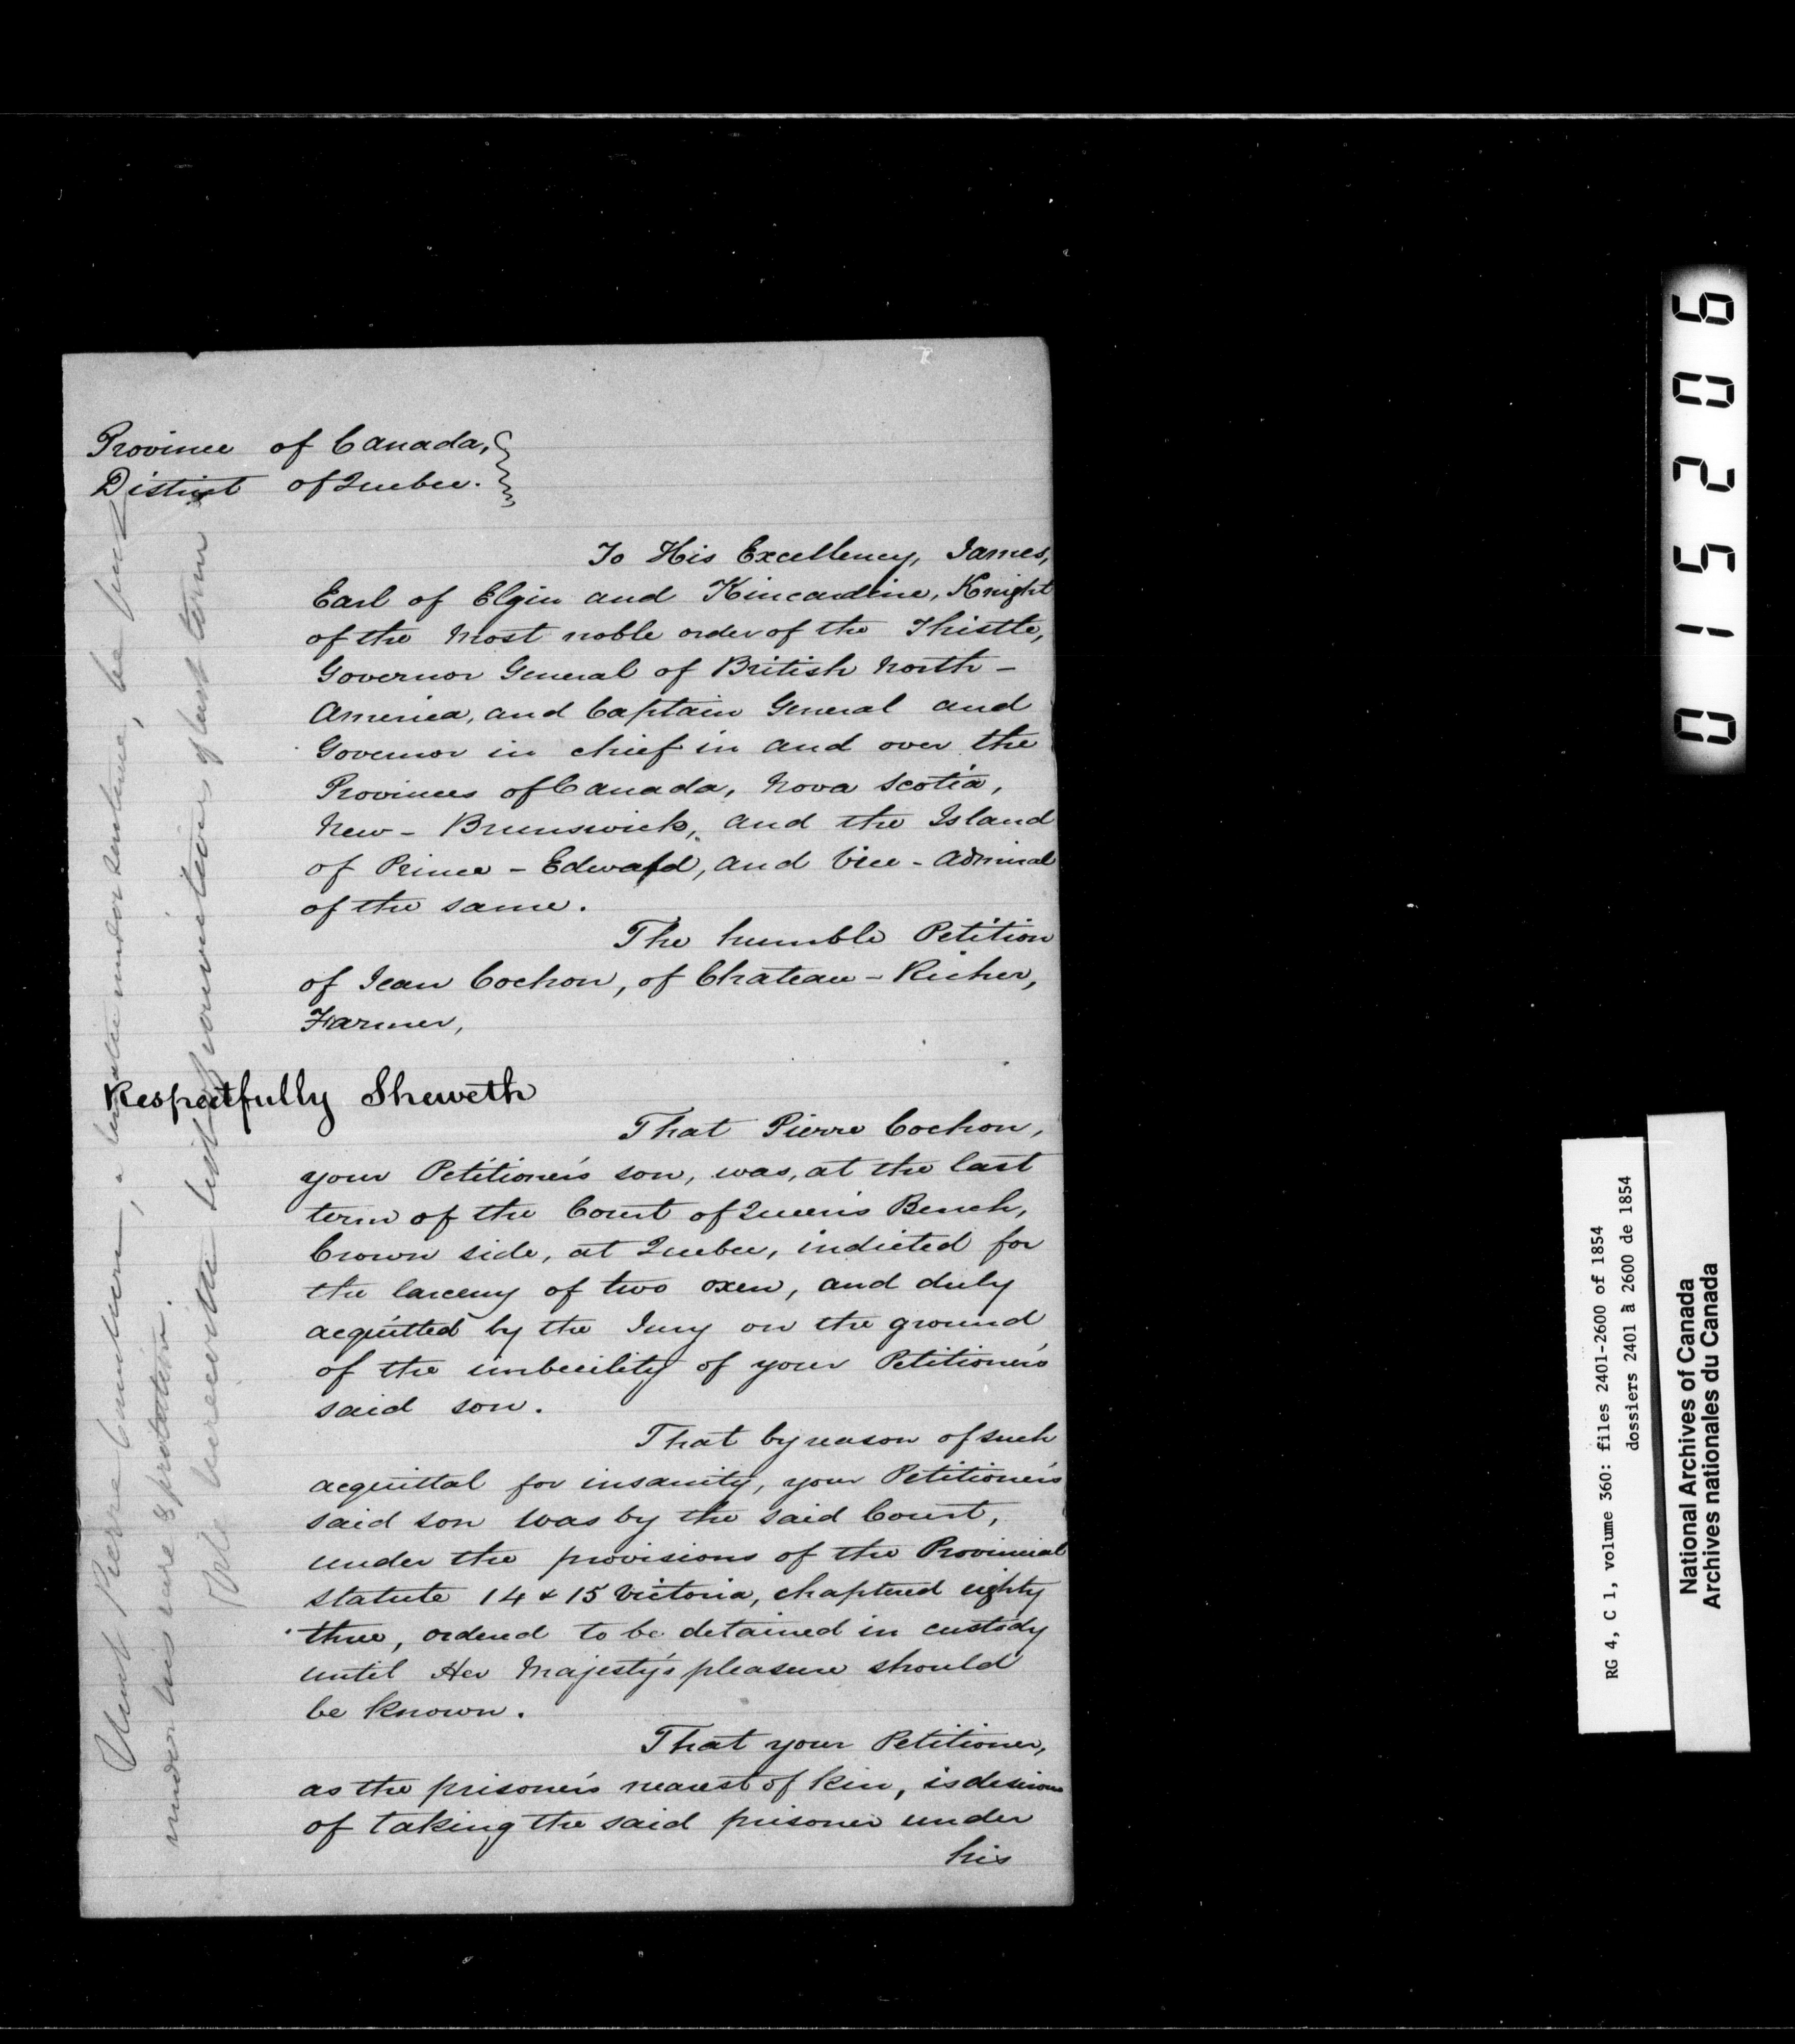 Province of Canada,
District of Quebec.
To His Excellency, James,
Earl of Elgin and Kincardine, Knight
of the Most noble order of the Thistle,
Governor General of British North-
America, and Captain General and
Governor in chief in and over the
Provinces of Canada, Nova Scotia,
New-Brunswick, and the Island
of Prince-Edward, and Vice-Admiral
of the same.
The humble Petition
of Jean Cochon, of Chateau-Richer,
Farmer,
Respectfully Sheweth
That Pierre Cochon,
your Petitioner's son, was, at the last
term of the Court of Queen's Bench,
Crown side, at Quebec, indicted for
the larceny of two oxen, and duly
acquitted by the Jury on the ground
of the imbecility of your Petitioner's
said son.
That by reason of such
acquittal for insanity, your Petitioner's
said son was by the said Court,
under the provisions of the Provincial
Statute 14 & 15 Victoria, chaptered eighty
three, ordered to be detained in custody
until Her Majesty's pleasure should
be known.
That your Petitioner,
as the prisoner's nearest of kin, is desirous
of taking the said prisoner under
his
Pierre a lunatic under sentence, be
under his care & protection.
herewith list of convictions of last term
015206
RG 4, C 1, volume 360: files 2401-2600 of 1854
dossiers 2401 à 2600 de 1854
National Archives of Canada
Archives nationales du Canada